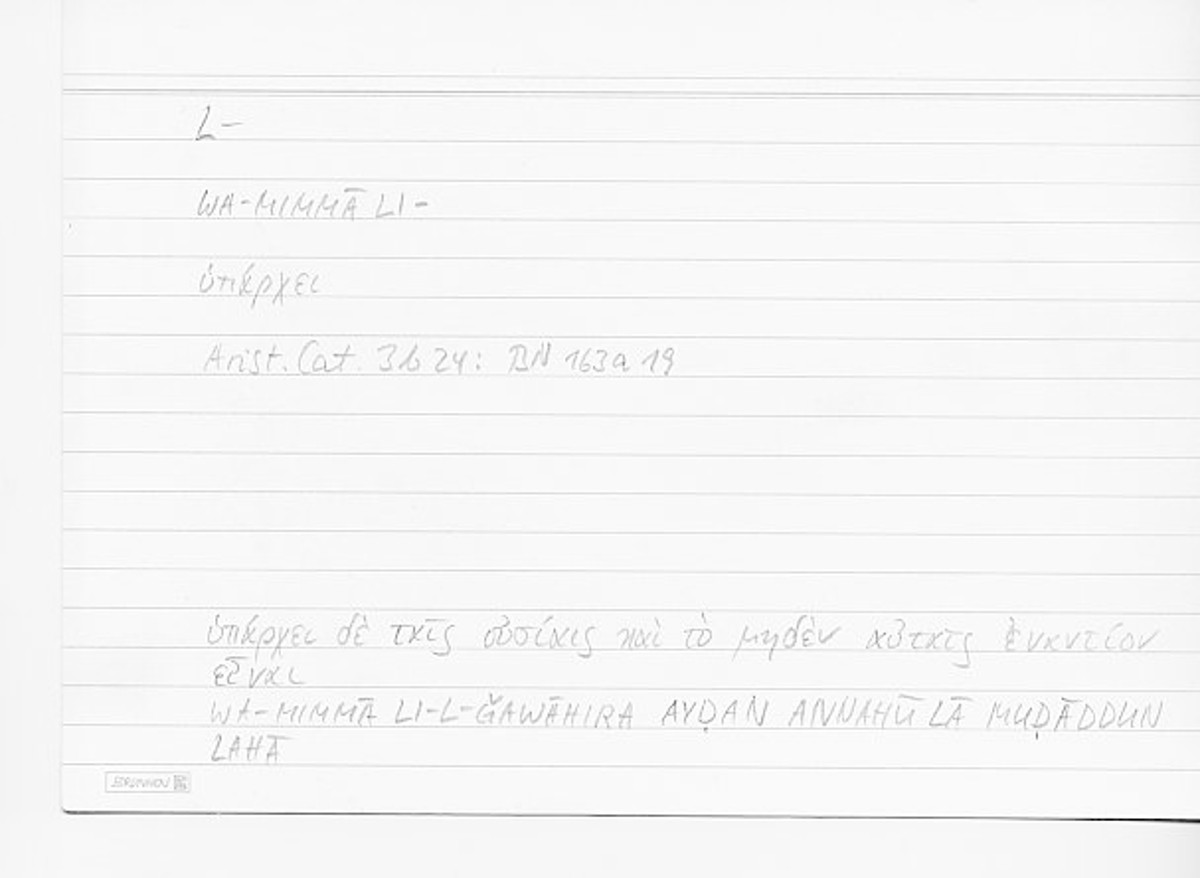 L-
WA-MIMMĀ LI-
ὑπάρχει
Arist. Cat. 3b24: BN 163a 19
ὑπάρχει δὲ ταῖς οὐσίαις καὶ τὸ μηδὲν αὐταῖς ἐναντίον
εἶναι
WA-MIMMĀ LI-L-ǦAWĀHIRA AYḌAN ANNAHŪ LĀ MUḌĀDDUN
LAHĀ
BRUNNEN